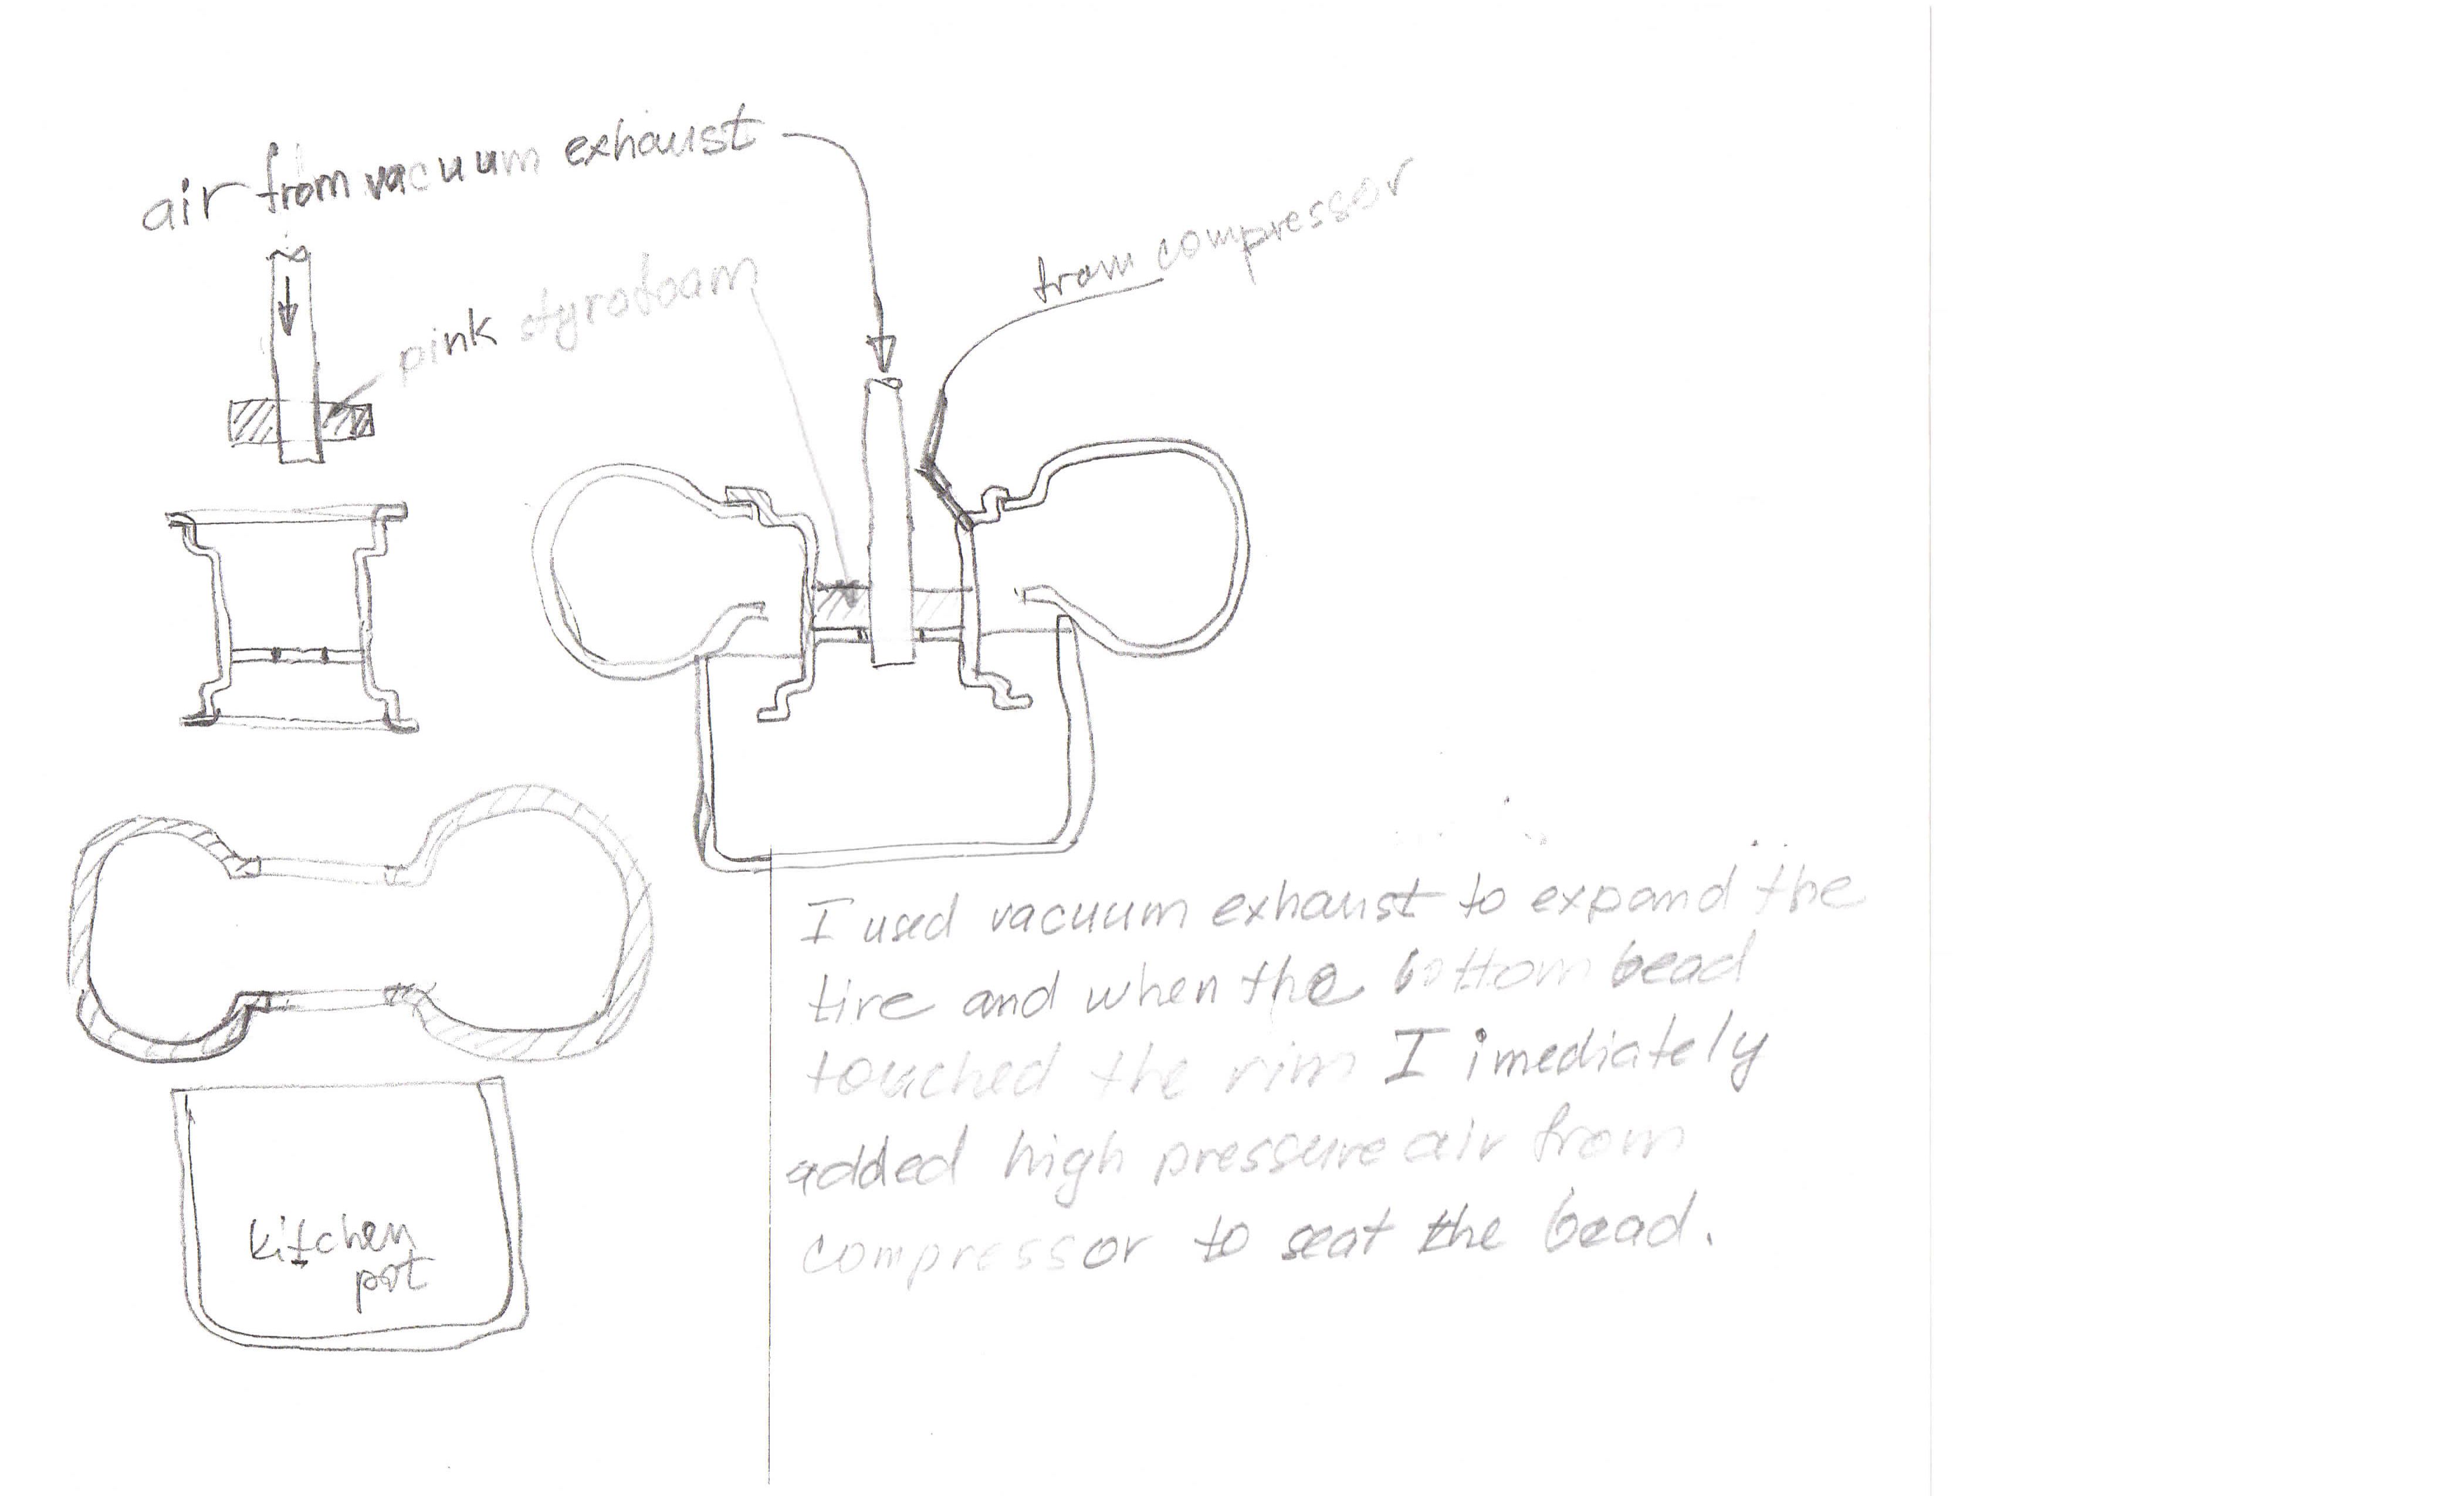 air from vacuum exhaust
from compressor
pink styrofoam
I used vacuum exhaust to expand the
tire and when the bottom bead
touched the rim I imediately
added high pressure air from
compressor to seat the bead.
kitchen
pot